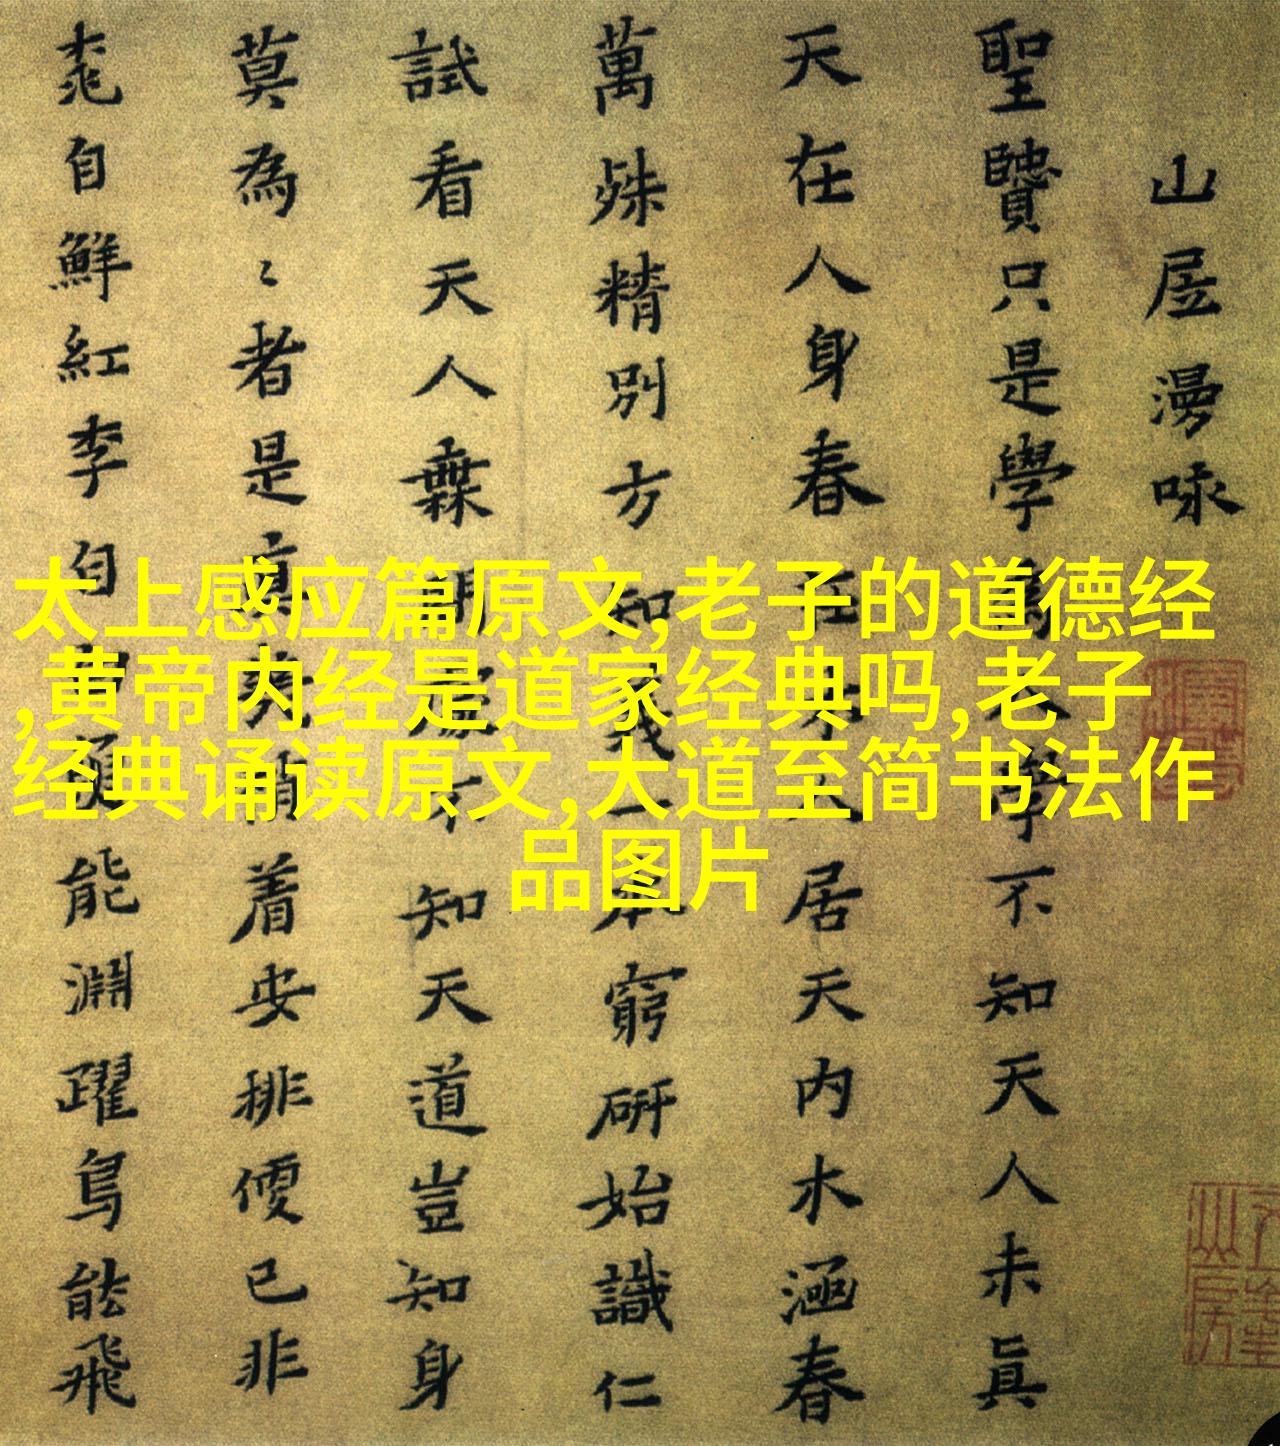 山居漫咏
聖賢只是學學不知天人未真
天在人身春人居天内木涵春
萬殊精別方知一本窮研始識仁
試看天人無知天道豈知身
莫為々者是真着安排便已非
桃自鮮紅李自能淵躍鳥能飛
太上感应篇原文,老子的道德经
,黄帝内经是道家经典吗,老子
经典诵读原文,大道至简书法作
品图片